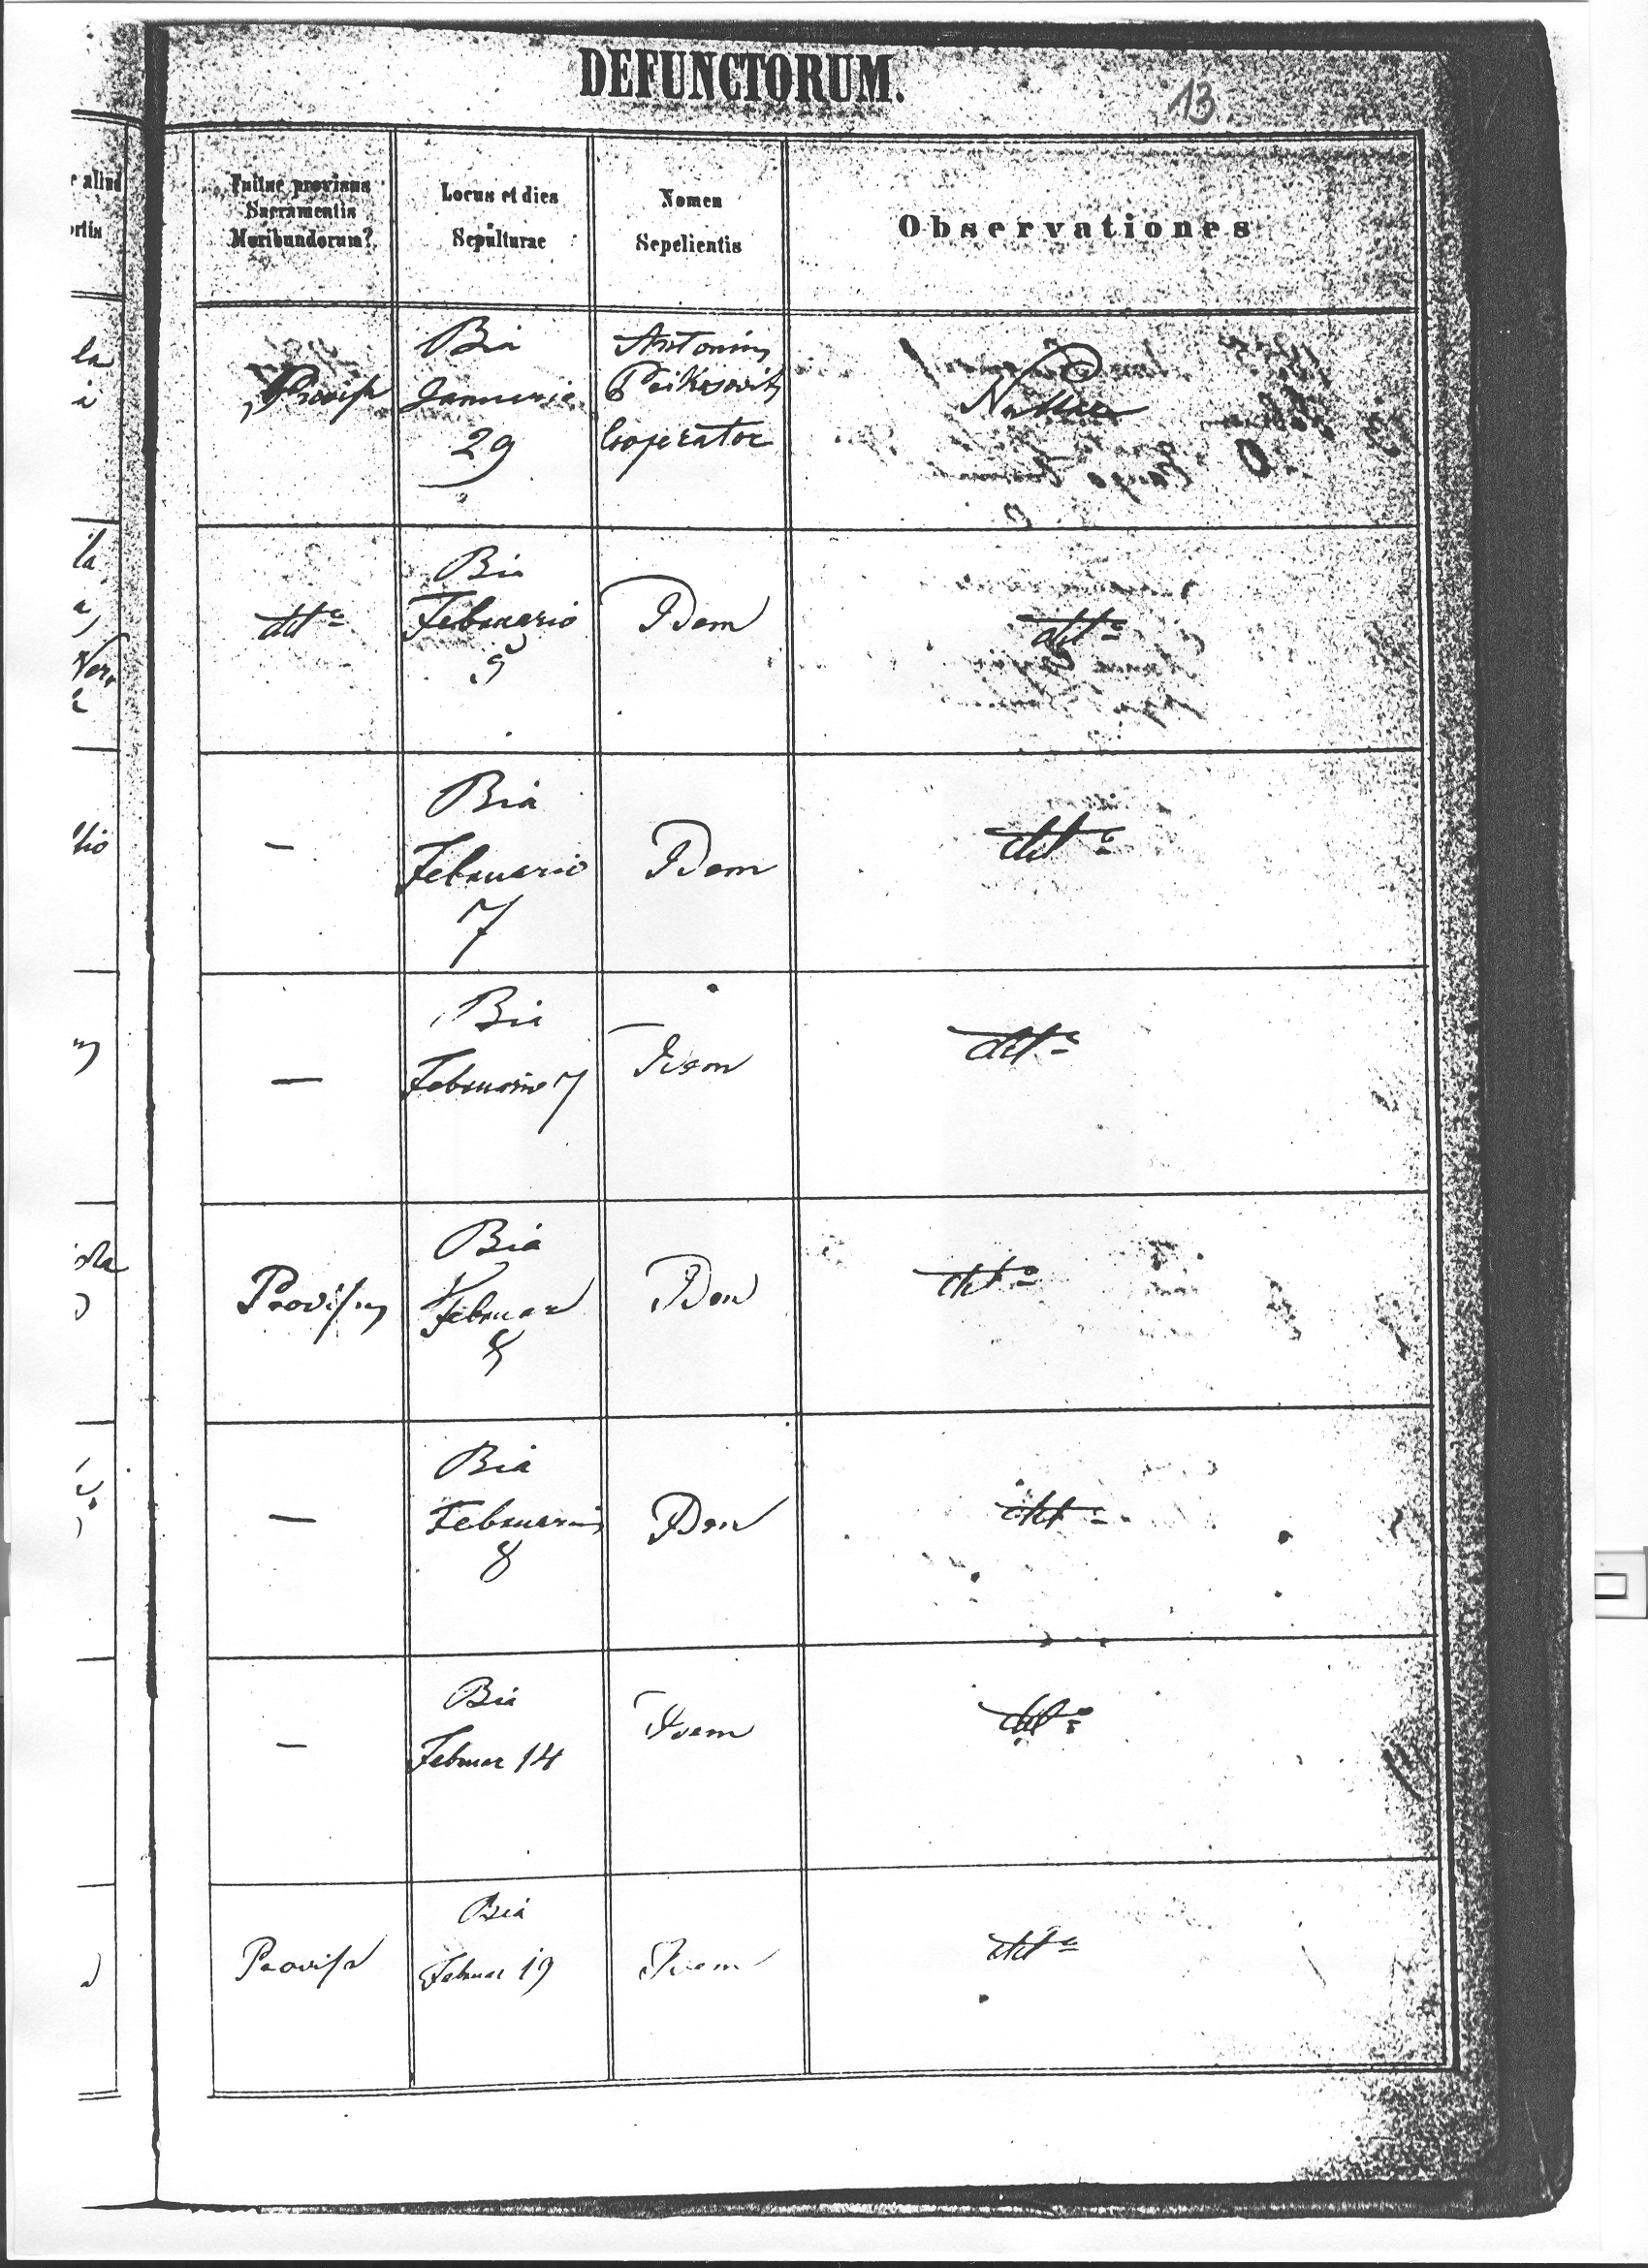 DEFUNCTORUM.
13
Fuitne provisus
Sacramentis
Moribundorum?
Locus et dies
Sepulturae
Nomen
Sepelientis
Observationes
Provisa
Bia
Januario
29
Antonius
Cooperator
Nulla
dtto
Bia
Februario
5
Idem
dtto
—
Bia
Februario
7
Idem
dtto
—
Bia
Februario 7
Idem
dtto
Provisus
Bia
Februar
8
Idem
dtto
—
Bia
Februarius
8
Idem
dtto
—
Bia
Februar 14
Idem
dtto
Provisa
Bia
Februar 19
Idem
dtto